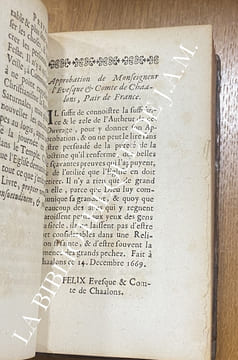 Approbation de Monseigneur
l'Evesque & Comte de Chaa-
lons, Pair de France.
IL suffit de connoistre la suffisan-
ce & le zele de l'Autheur de cet
Ouvrage, pour y donner son Ap-
probation, & on ne peut le lire sans
estre persuadé de la pureté de la
doctrine qu'il renferme, des belles
& sçavantes preuves qui l'appuyent,
& de l'utilité que l'Eglise en doit
retirer. Il n'y a rien que de grand
en elle, parce que Dieu luy com-
munique sa grandeur, & quoy que
beaucoup des abus qui y regnent
paroissent peu aux yeux des gens
du siecle, ils ne laissent pas d'estre
fort considerables dans une Reli-
gion sainte, & d'estre souvent la
semence des grands pechez. Fait à
Chaalons ce 14. Decembre 1669.
FELIX Evesque & Com-
te de Chaalons.
LA BIBLIOTHEQUE DE J.A.M.